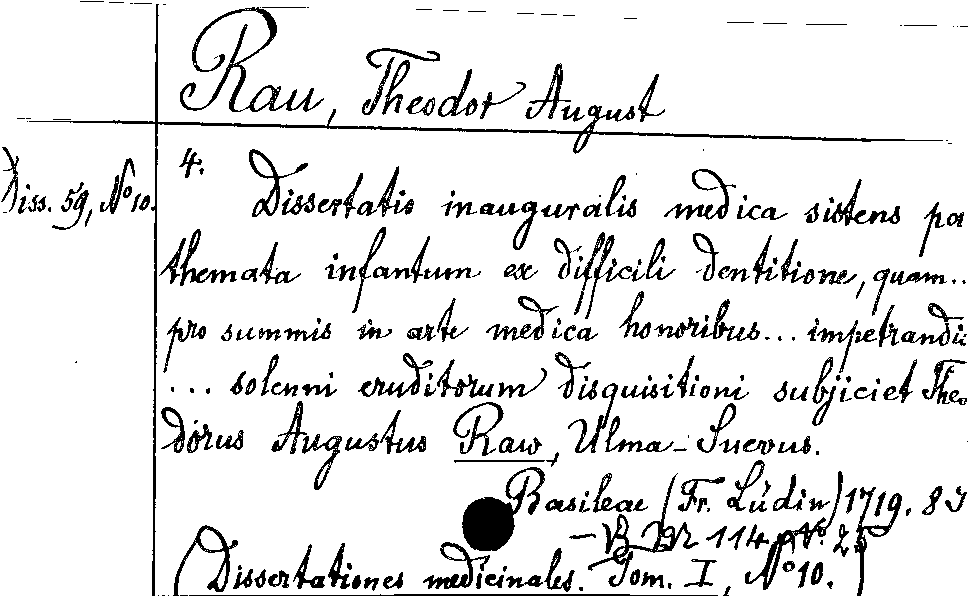 Rau, Theodor August
Diss. 59, No 10.
4.
Dissertatio inauguralis medica sistens pa
themata infantum ex difficili dentitione, quam..
pro summis in arte medica honoribus... impetrandis
... solenni eruditorum disquisitioni subjiciet Theo
dorus Augustus Raw, Ulma-Suevus.
Basileae (Fr. Lüdin) 1719. 8
— 114 No.
(Dissertationes medicinales. Tom. I, No 10.)